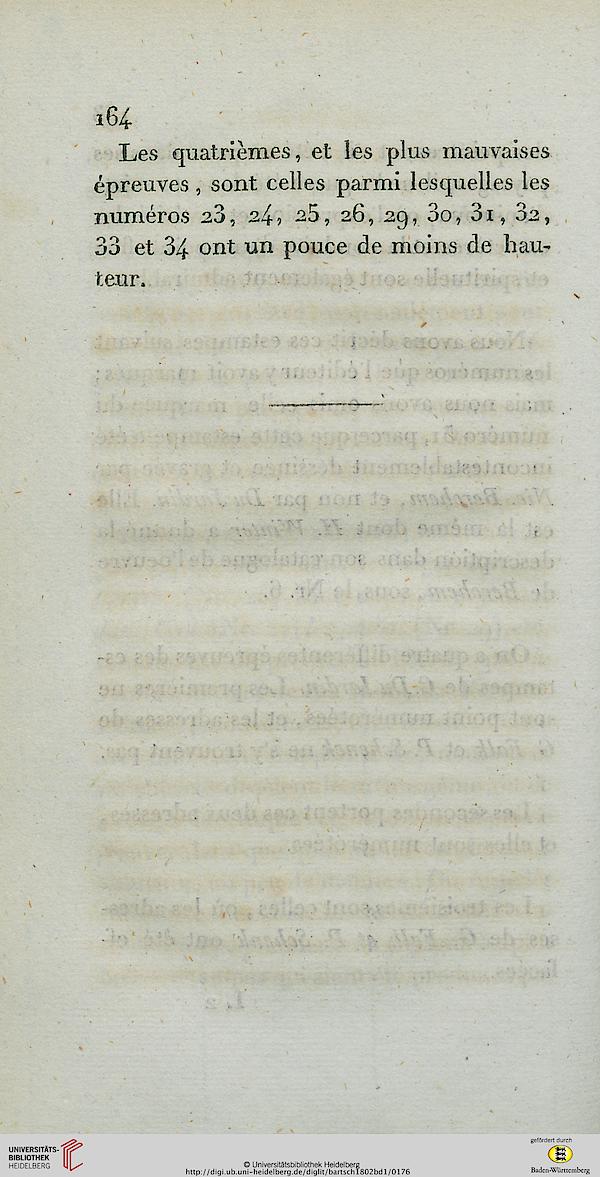 164
Les quatrièmes, et les plus mauvaises
épreuves, sont celles parmi lesquelles les
numéros 23, 24, 25, 26, 29, 30, 31, 32,
33 et 34 ont un pouce de moins de hau-
teur.
UNIVERSITÄTS-
BIBLIOTHEK
HEIDELBERG
© Universitätsbibliothek Heidelberg
http://digi.ub.uni-heidelberg.de/diglit/bartsch1802bd1/0176
gefördert durch
Baden-Württemberg